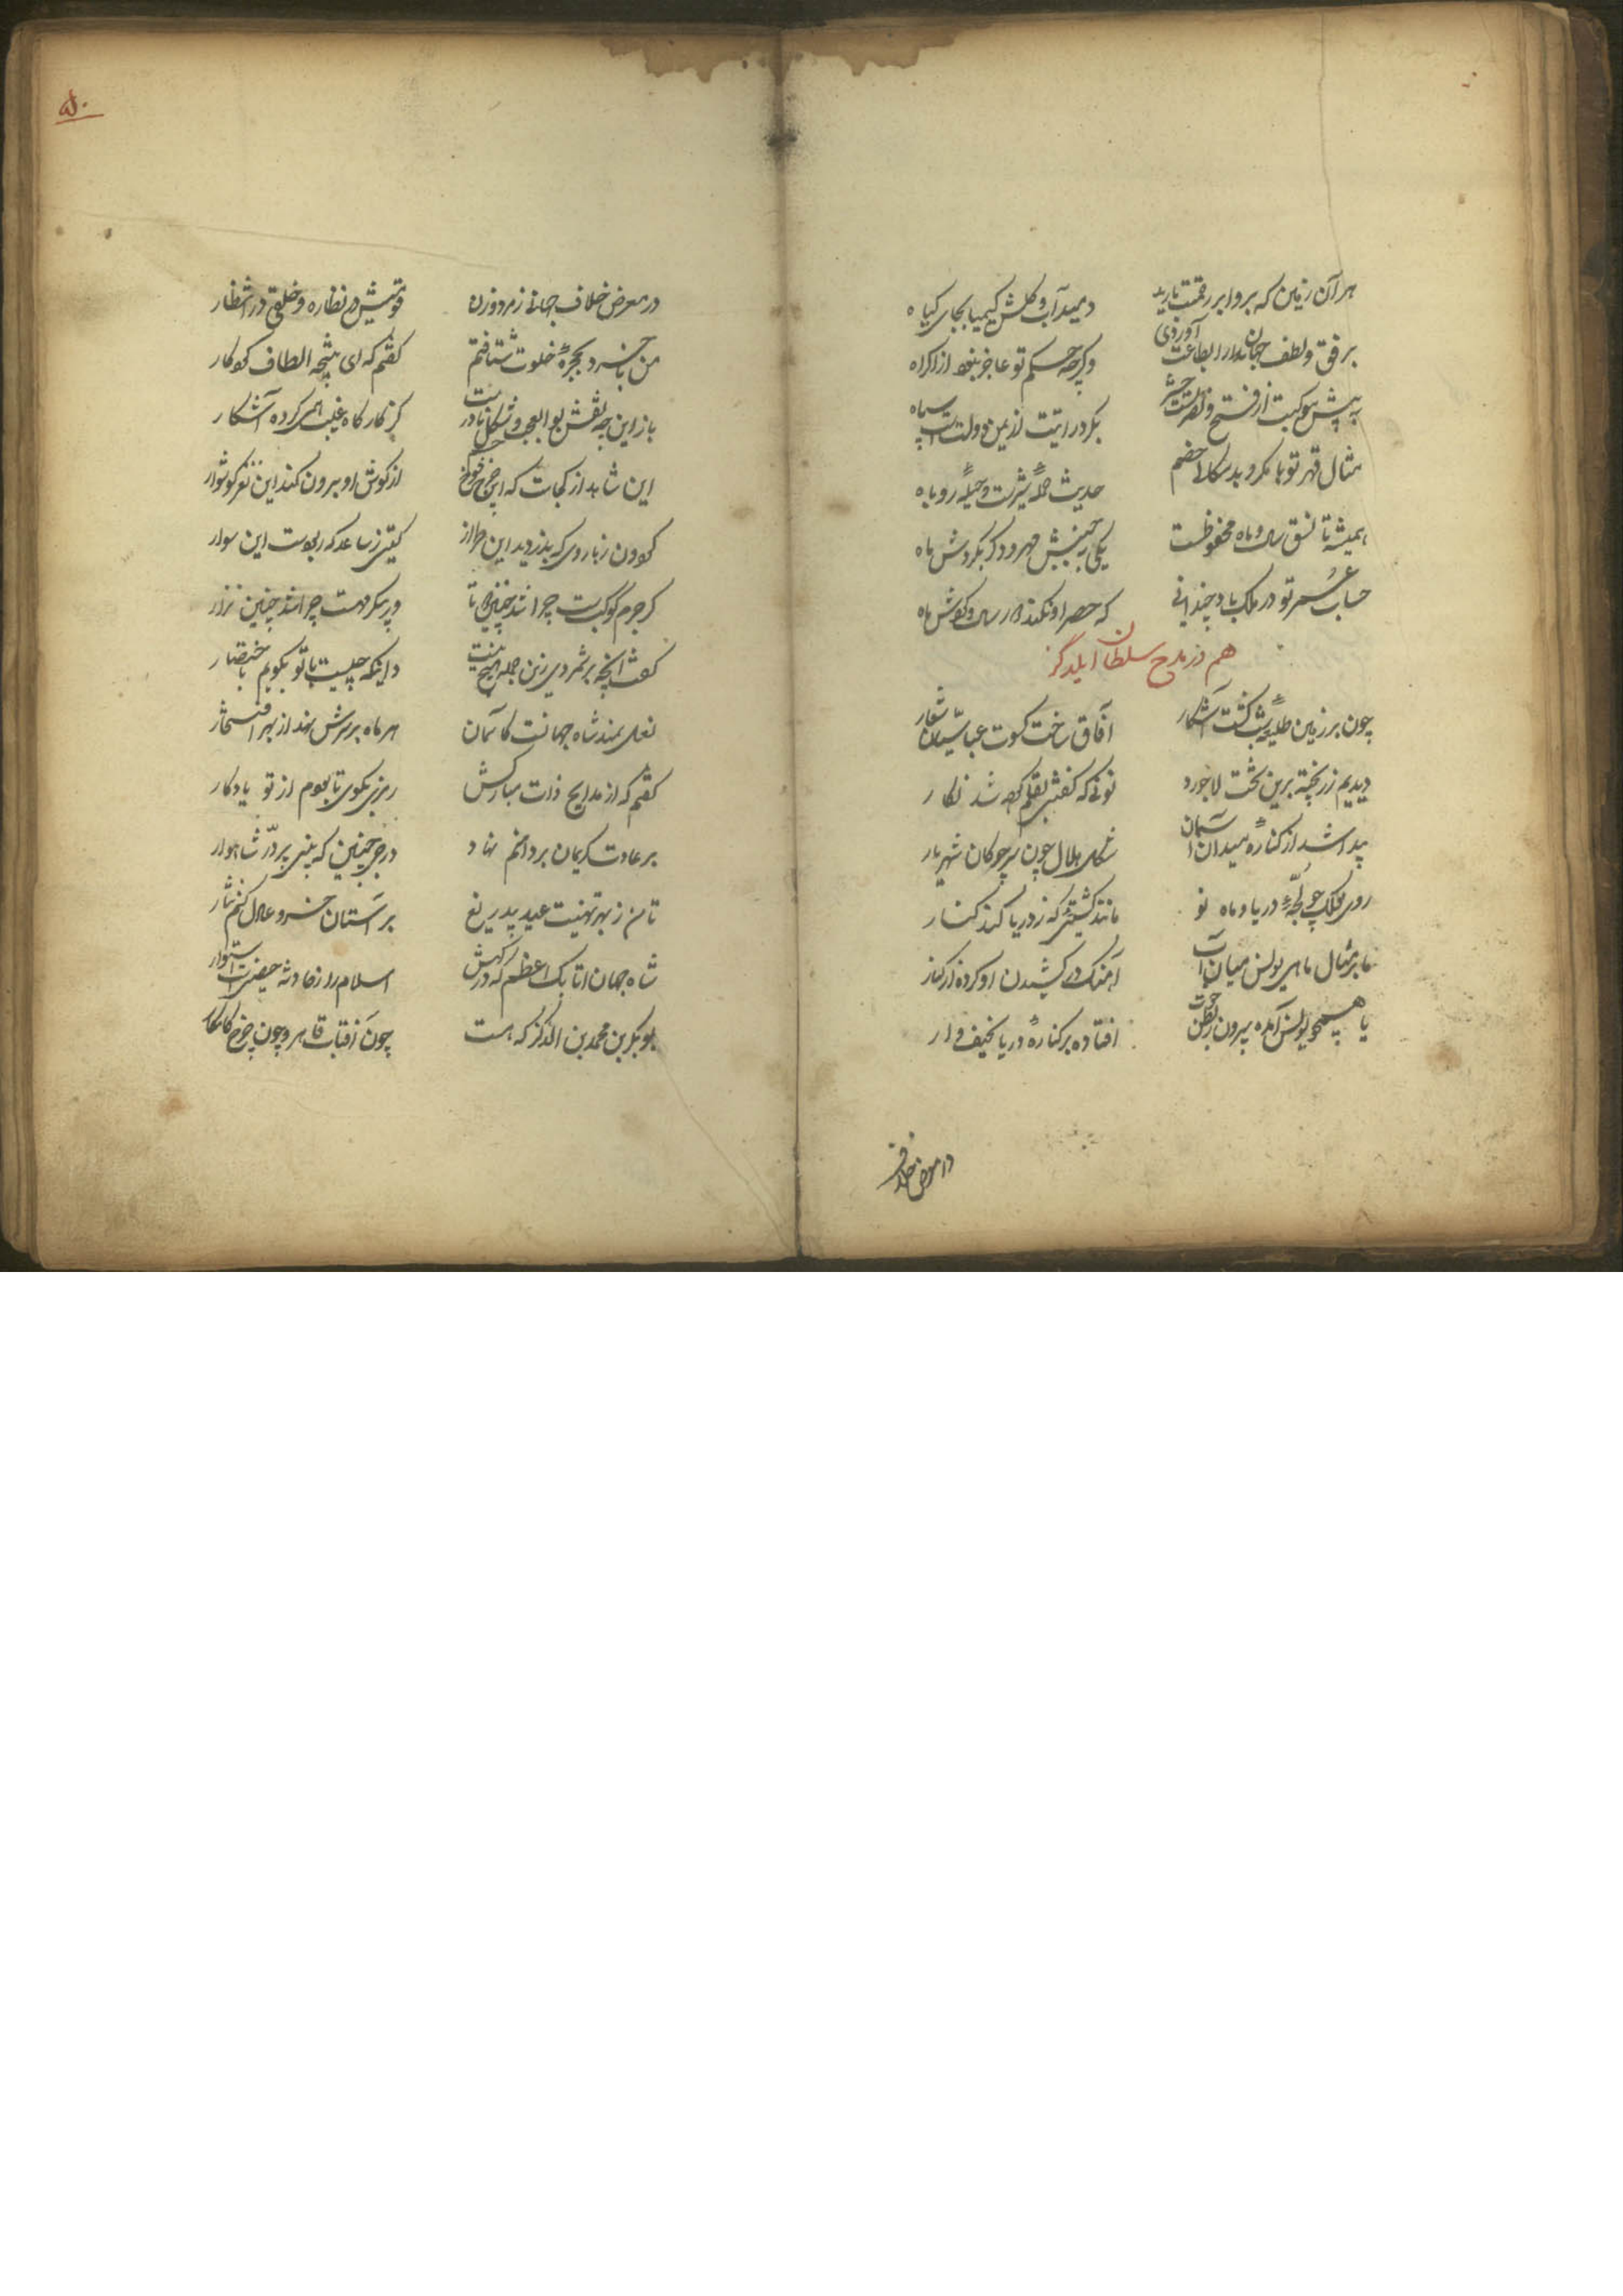 هر آن زمین که برو ابر رحمتت بارید
دمید آب و گلش کیمیا بجای گیاه
برفق و لطف جهان را بطاعت آوردی
وگرچه حکم تو عاجز نبود از اکراه
به پیش موکبت از فتح و نصرتست حشر
بگرد رایتت از یمن و دولتست سپاه
مثال قهر تو با مکر و بدسگالی خصم
حدیث حملهٔ شیرست و حیلهٔ روباه
همیشه تا نسق سال و ماه محفوظست
یکی بجنبش مهر و دگر بگردش ماه
حساب عمر تو در ملک باد چندانی
که حصر او نکند دور سال و گوش ماه
هم در مدح سلطان ایلدگز
چون بر زمین طلیعهٔ شب گشت آشکار
آفاق ساخت کسوت عباسیان شعار
دیدیم زر پخته برین تخت لاجورد
نونی که گفتیی بقلم کرده شد نگار
پیدا شد از کنارهٔ میدان آسمان
شکل هلال چون سر چوگان شهریار
روی فلک چو لجهٔ دریا و ماه نو
مانند کشتیی که ز دریا کند کنار
یا بر مثال ماهی یونس میان آب
آهنگ در کشیدن او کرده از کنار
یا همچو یونس آمده بیرون ز بطن حوت
افتاده بر کنارهٔ دریا نحیف و زار
در معرض خلاف
۵۰
در معرض خلاف جهانی ز مرد و زن
قومیش در نظاره و خلقی در انتظار
من با خرد بحجرهٔ خلوت شتافتم
گفتم که ای نتیجه الطاف کردگار
باز این چه نقش بوالعجب و شکل نادرست
کز کارگاه غیب همی کرده آشکار
این شاهد از کجاست که این چرخ شوخ چشم
از گوش او برون کند این نغز گوشوار
گردون ز بازوی که بدزدید این طراز
گیتی ز ساعد که ربودست این سوار
گر جرم کوکبست چرا شد چنین دو تا
ور پیکر مهست چرا شد چنین نزار
گفت آنچه برشمردی زین جمله هیچ نیست
دانی که چیست با تو بگویم باختصار
نعل سمند شاه جهانست کآسمان
هر ماه بر سرش نهد از بهر افتخار
گفتم که از مدایح ذات مبارکش
رمزی بگوی تا بودم از تو یادگار
بر عادت کریمان بر دستم نهاد
درجی چنین که بینی پر در شاهوار
تا من ز بهر تهنیت عید بی‌دریغ
بر آستان خسرو عادل کنم نثار
شاه جهان اتابک اعظم که درگهش
اسلام را ز حادثه حصنیست استوار
بوبکر بن محمد بن الدگز که هست
چون آفتاب قاهر و چون چرخ کامکار